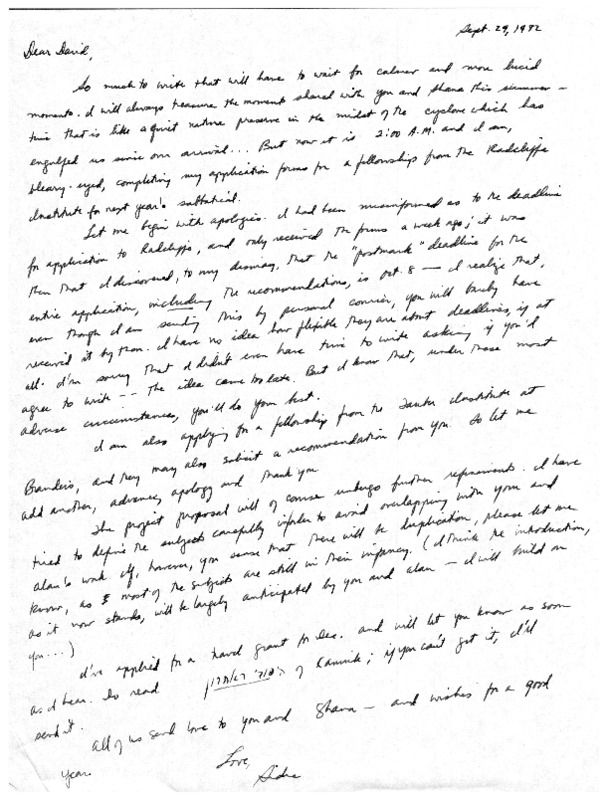 Sept. 29, 1982
Dear David,
So much to write that will have to wait for calmer and more lucid
moments. I will always treasure the moments shared with you and Shana this summer –
time that is like a quiet nature preserve in the midst of the cyclone which has
engulfed us since our arrival... But now it is 2:00 A.M. and I am,
bleary-eyed, completing my application forms for a fellowship from the Radcliffe
Institute for next year's sabbatical.
Let me begin with apologies. I had been misinformed as to the deadline
for application to Radcliffe, and only received the forms a week ago; it was
then that I discovered, to my dismay, that the "postmark" deadline for the
entire application, including the recommendations, is Oct. 8 — I realize that,
even though I am sending this by personal courier, you will barely have
received it by then. I have no idea how flexible they are about deadlines, if at
all. I'm sorry that I didn't even have time to write asking if you'd
agree to write -- the idea came too late. But I know that, under these most
adverse circumstances, you'll do your best.
I am also applying for a fellowship from the Tauber Institute at
Brandeis, and they may also solicit a recommendation from you. So let me
add another, advance, apology and thank you.
The project proposal will of course undergo further refinements. I have
tried to define the subjects carefully in order to avoid overlapping with your and
Alan's work. If, however, you sense that there will be duplication, please let me
know, as most of the subjects are still in their infancy. (I think the introduction,
as it now stands, will be largely anticipated by you and Alan — I will build on
you...)
I've applied for a travel grant for Dec. and will let you know as soon
as I hear. Do read of Kaniuk; if you can't get it, I'll
send it.
All of us send love to you and Shana – and wishes for a good
year.
Love,
Sidra